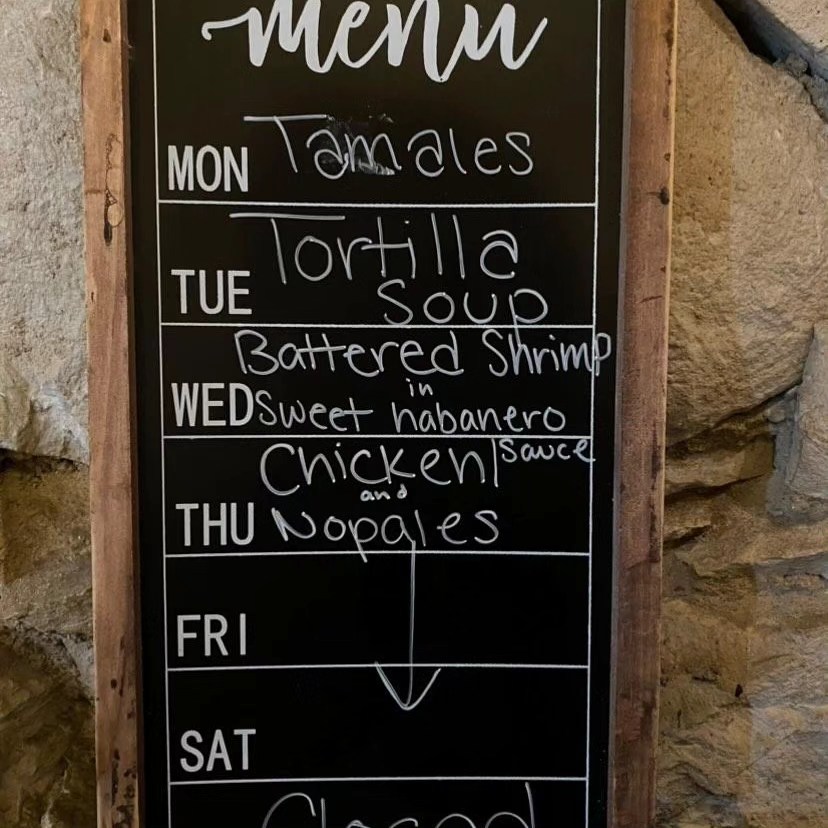 menu
MON Tamales
Tortilla
TUE Soup
Battered Shrimp
in
WED Sweet habanero
Sauce
Chicken
and
THU Nopales
FRI
SAT
Closed